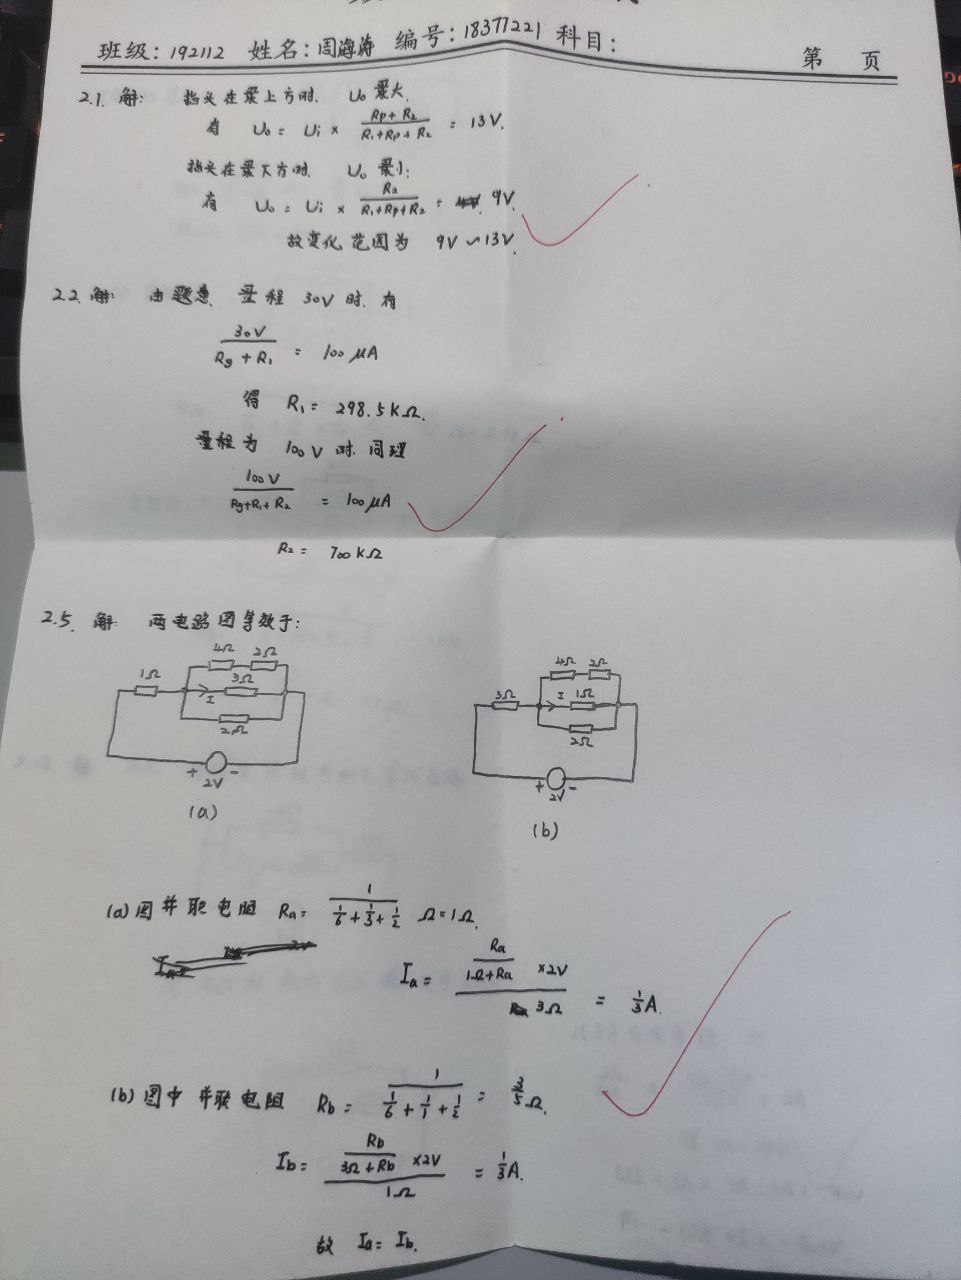 班级: 192112 姓名: 周海涛 编号: 18377221 科目: 第 页
2.1. 解: 指头在最上方时. U₀ 最大.
有 U₀ = Ui × (Rp+R₂)/(R₁+Rp+R₂) = 13V.
指头在最下方时. U₀ 最小:
有 U₀ = Ui × R₂/(R₁+Rp+R₂) = 9V.
故变化范围为 9V~13V.
2.2. 解: 由题意. 量程 30V 时. 有
30V/(Rg+R₁) = 100 μA
得 R₁ = 298.5KΩ.
量程为 100V 时. 同理
100V/(Rg+R₁+R₂) = 100 μA
R₂ = 700KΩ
2.5. 解: 两电路图等效于:
4Ω 2Ω 4Ω 2Ω
1Ω I 3Ω 3Ω I 1Ω
2Ω 2Ω
+ 2V - + 2V -
(a) (b)
(a) 图并联电阻 Ra = 1/(1/6+1/3+1/2) Ω = 1Ω.
Ia = (Ra/(1Ω+Ra) ×2V)/3Ω = 1/3 A.
(b) 图中并联电阻 Rb = 1/(1/6+1/1+1/2) = 3/5 Ω.
Ib = (Rb/(3Ω+Rb) ×2V)/1Ω = 1/3 A.
故 Ia = Ib.